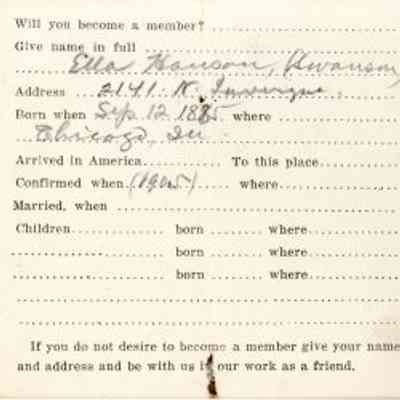 Will you become a member? ..........
Give name in full ..........
Ella Hanson, Swanson
Address 2141 N.
Born when Sep. 12 1885 where ..........
Chicago, Ill.
Arrived in America.......... To this place..........
Confirmed when (1905) where..........
Married, when ..........
Children.......... born ........ where..........
.......... born ........ where..........
.......... born ........ where..........
If you do not desire to become a member give your name
and address and be with us in our work as a friend.